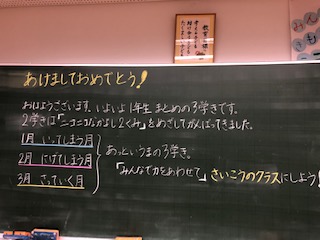 あけましておめでとう!
おはようございます。いよいよ1年生 まとめの3学きです。
2学きは「ニコニコなかよし2くみ」をめざしてがんばってきました。
1月 いってしまう月
2月 にげてしまう月
3月 さっていく月
あっというまの3学き。
「みんなで力をあわせて」さいこうのクラスにしよう!